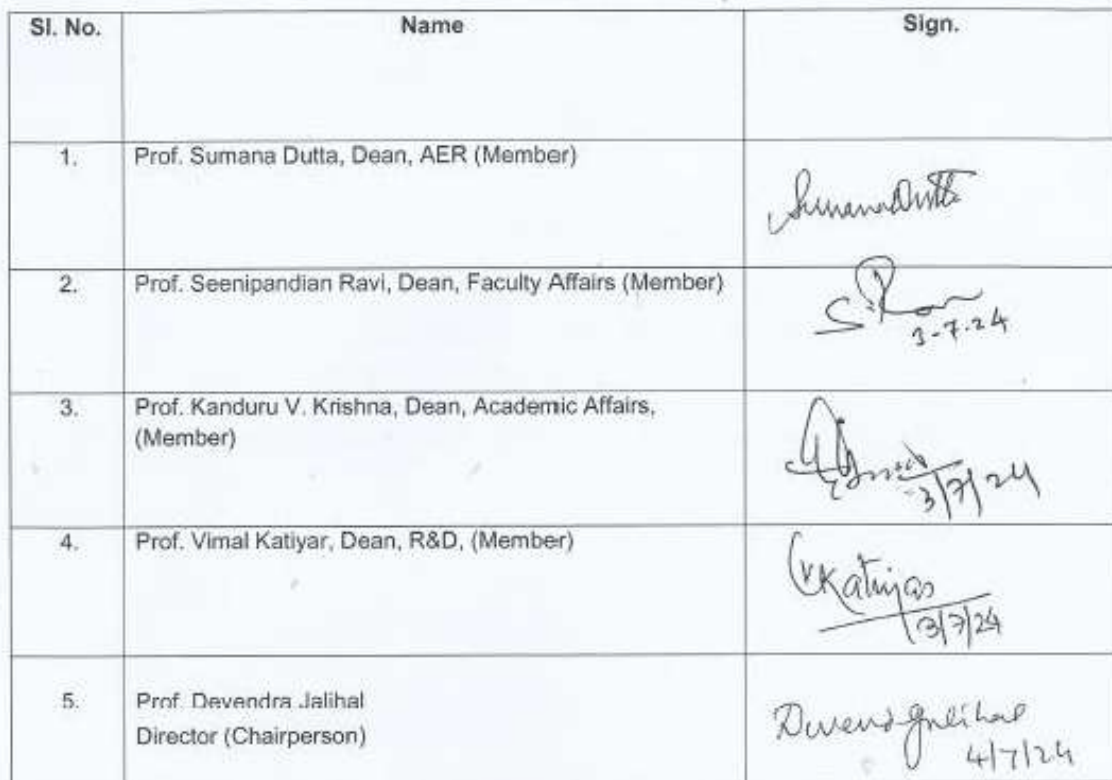 Sl. No. Name Sign.
1. Prof. Sumana Dutta, Dean, AER (Member)
Sumana Dutta
2. Prof. Seenipandian Ravi, Dean, Faculty Affairs (Member)
S. Ravi
3-7-24
3. Prof. Kanduru V. Krishna, Dean, Academic Affairs,
(Member)
3/7/24
4. Prof. Vimal Katiyar, Dean, R&D, (Member)
VKatiyar
3/7/24
5. Prof. Devendra Jalihal
Director (Chairperson)
Devendra Jalihal
4/7/24